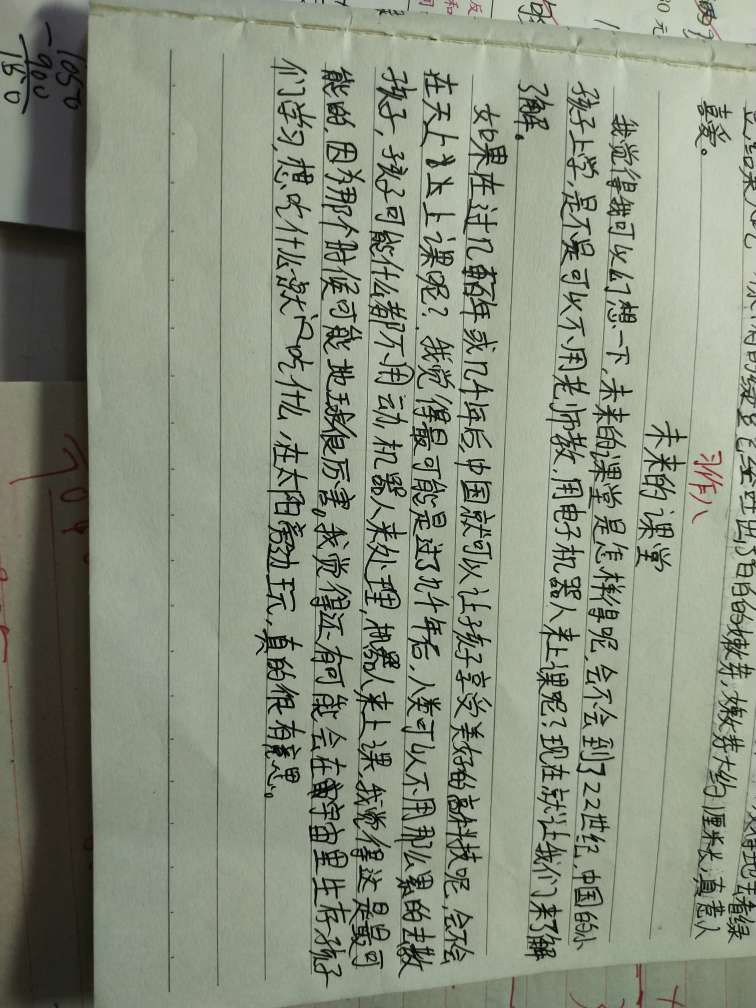 喜爱。
习作八
未来的课堂
我觉得我可以幻想一下,未来的课堂是怎样得呢,会不会到了22世纪,中国的小
孩子上学,是不是可以不用老师教,用电子机器人来上课呢?现在就让我们来了解
了解。
如果在过几百年或几十年后,中国就可以让孩子享受美好的高科技呢,会不会
在天上上课呢?我觉得最可能是过了几十年后,人类可以不用那么累的去教
孩子,孩子可能什么都不用动,机器人来处理,机器人来上课,我觉得这是最可
能的,因为那个时候可能地球很厉害。我觉得还有可能会在宇宙里生存,孩子
们学习,想吃什么就吃什么,在太阳旁边玩,真的很有意思。
1050
-900
150